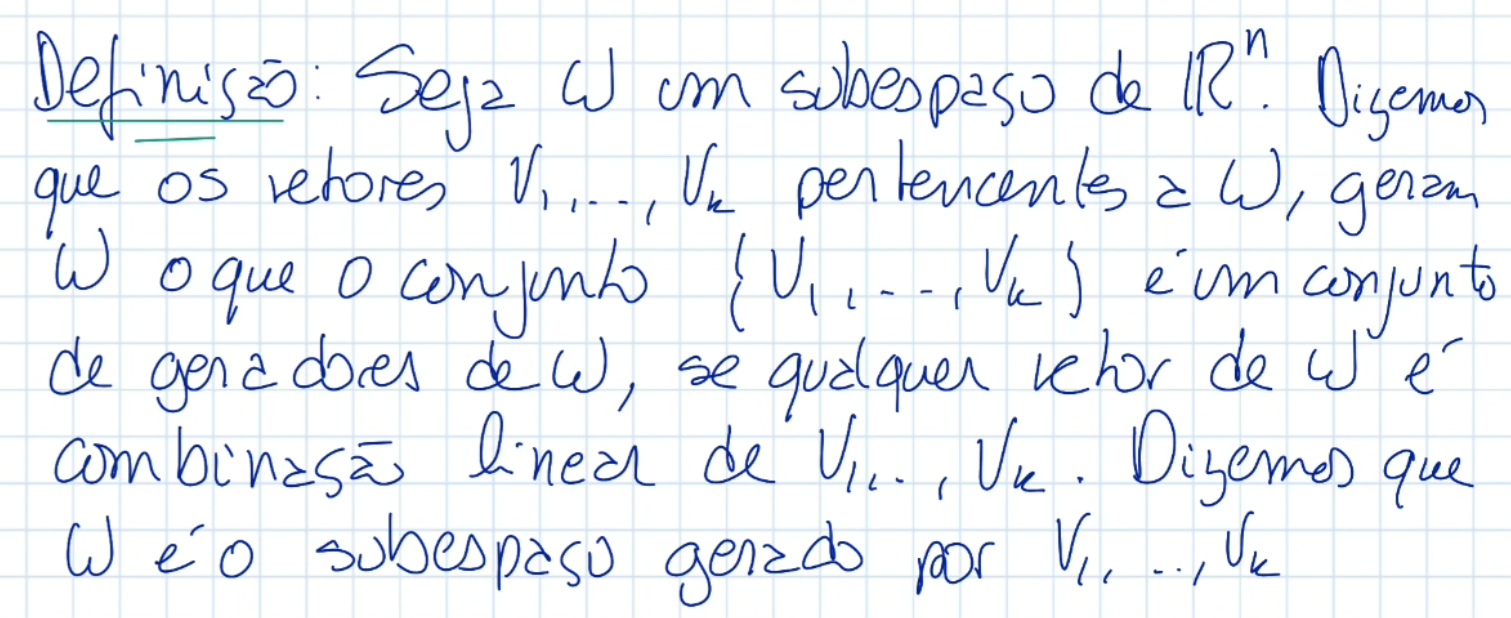 Definição: Seja W um subespaço de ℝⁿ. Dizemos
que os vetores V₁,..., Vₖ pertencentes a W, geram
W o que o conjunto {V₁,...,Vₖ} é um conjunto
de geradores de W, se qualquer vetor de W é
combinação linear de V₁,.., Vₖ. Dizemos que
W é o subespaço gerado por V₁,...,Vₖ